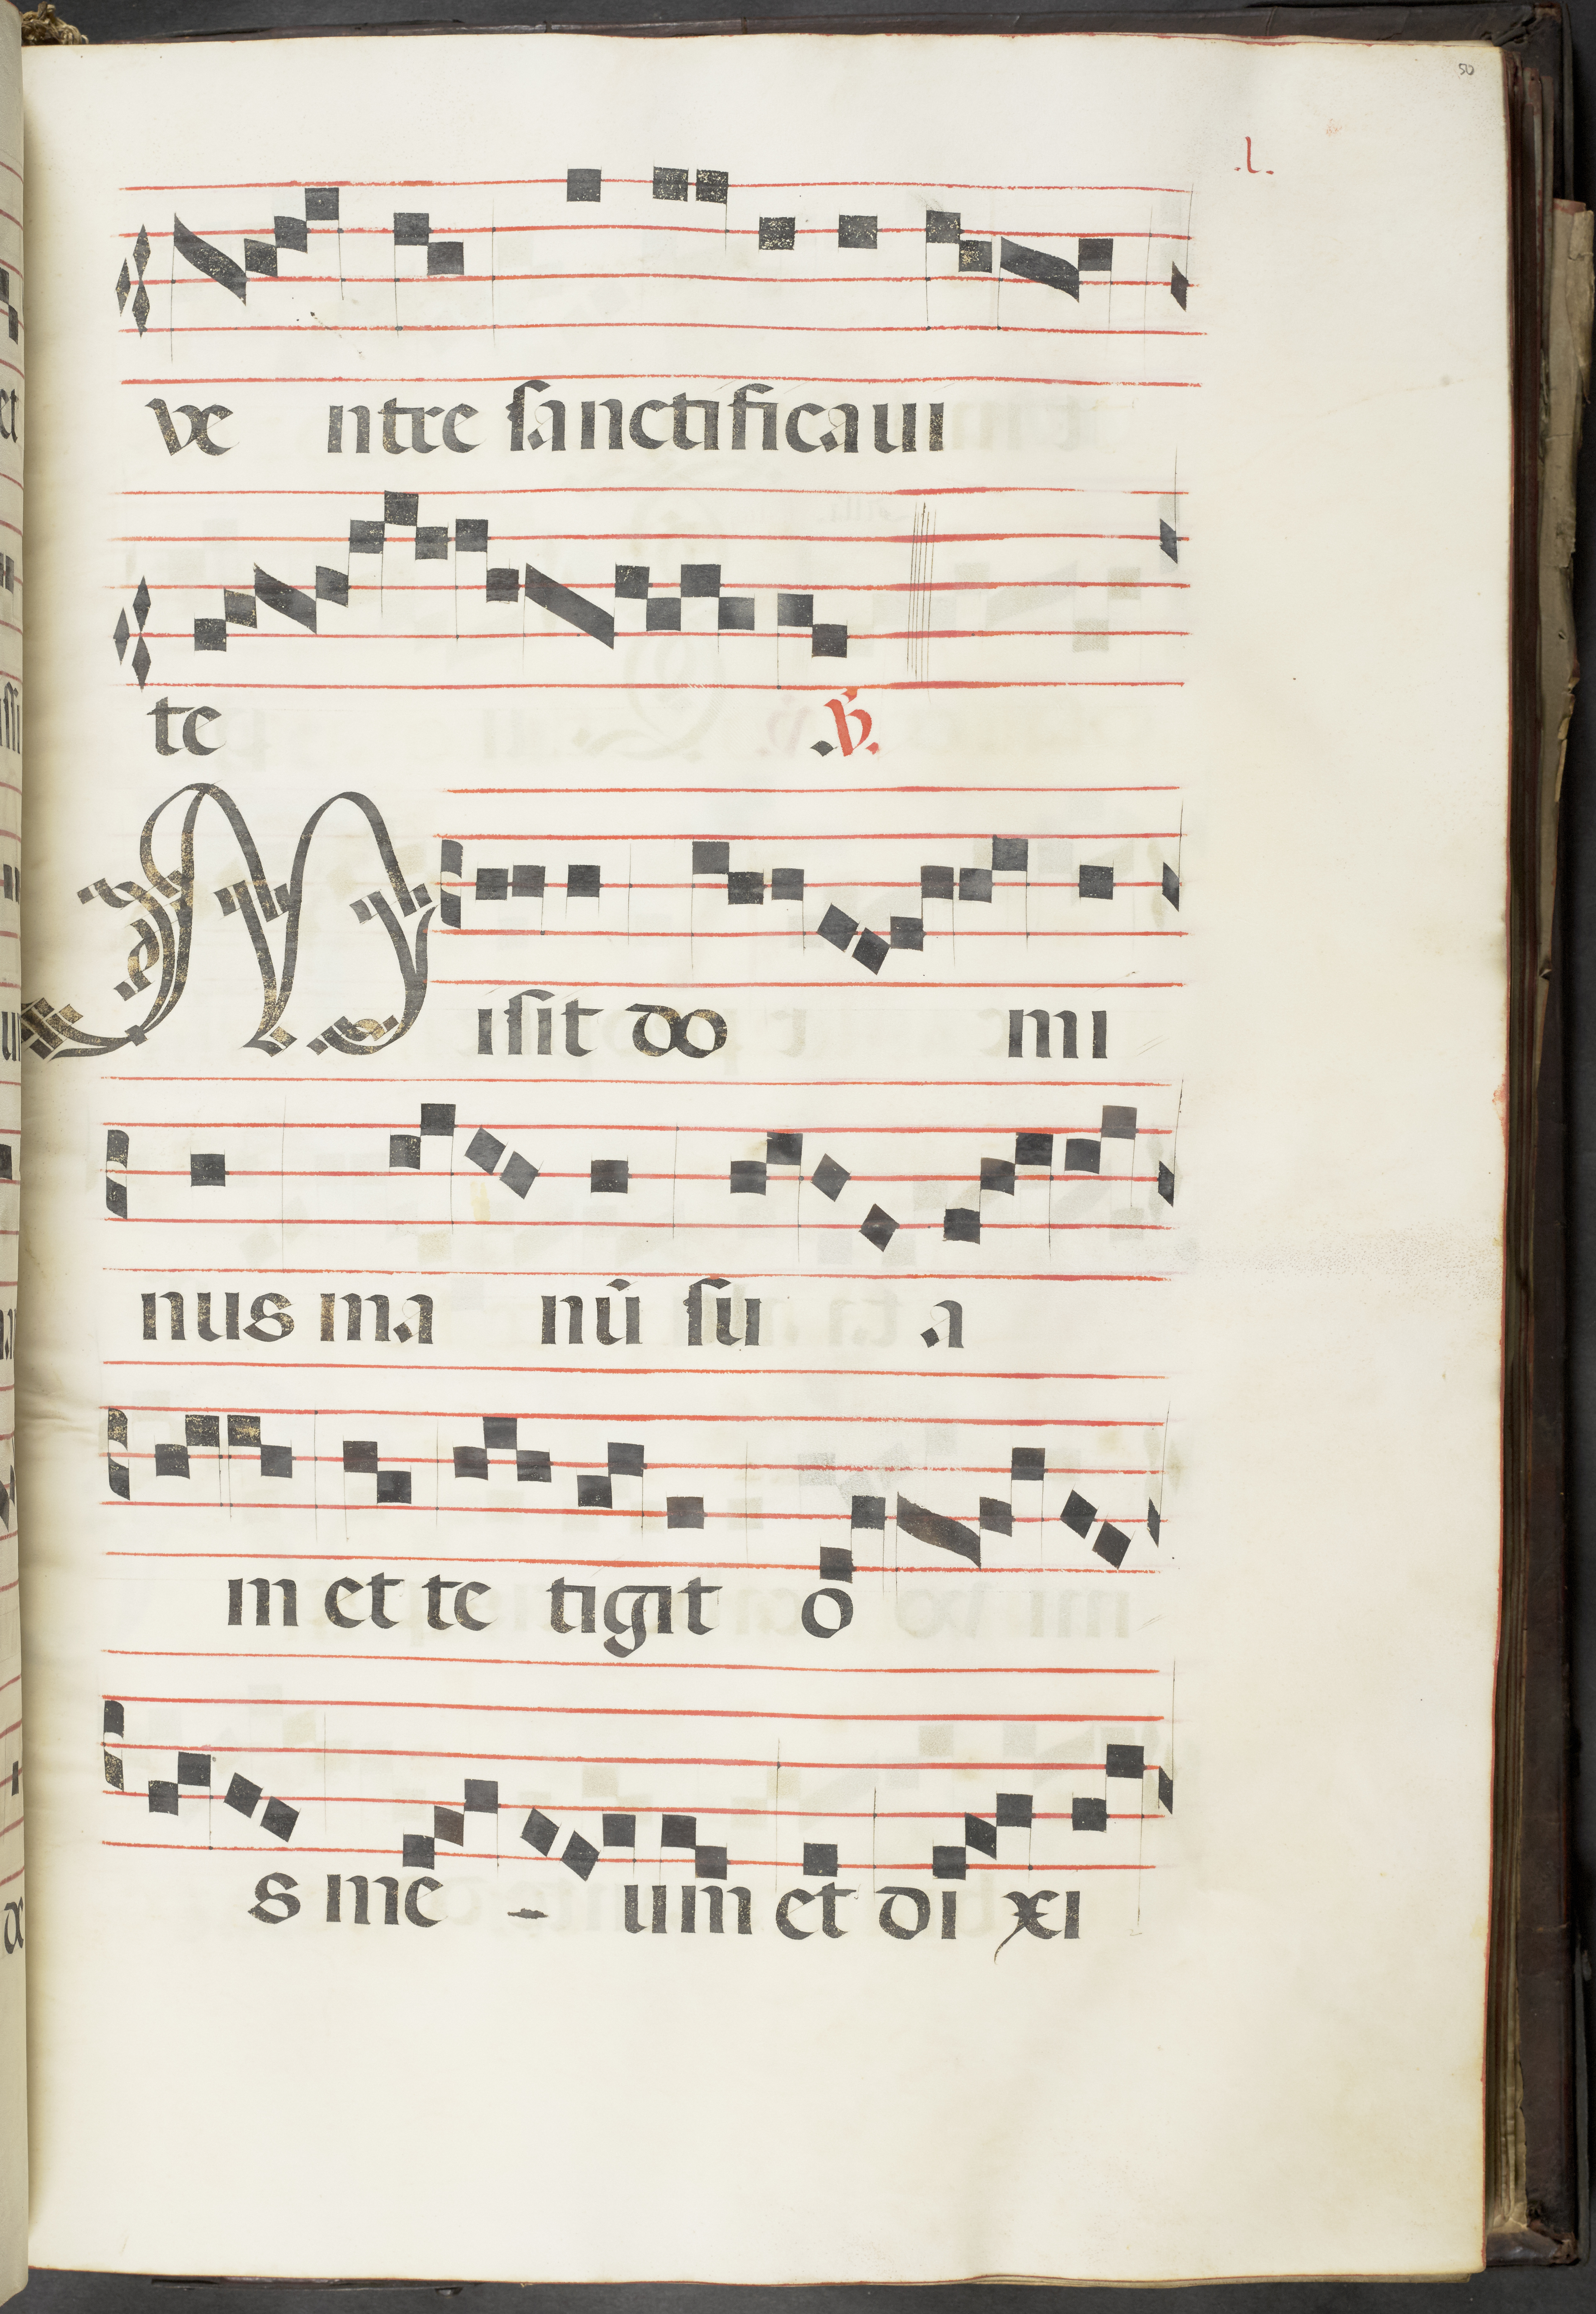 50
.l.
ve ntre sanctificaui
te .℣.
Misit do mi
nus ma nū su a
m et te tigit o
s me - um et di xi